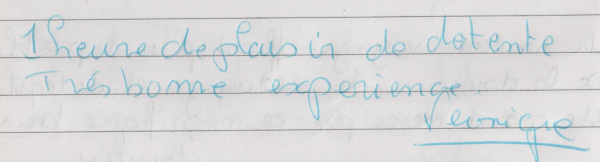 1 heure de plaisir de detente
Très bonne experience
Veronique